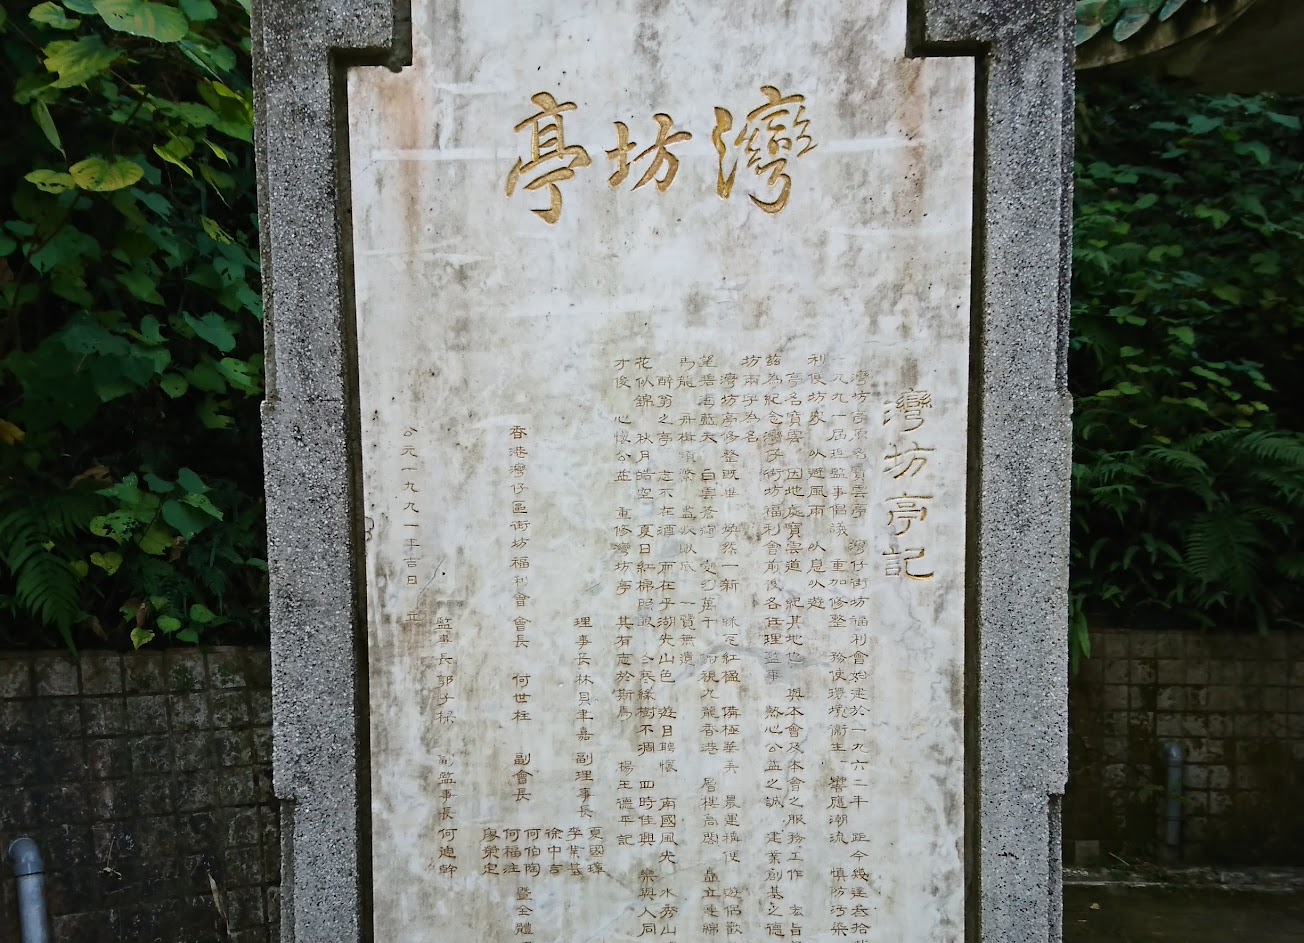 灣坊亭
灣坊亭記
灣坊亭原名寶雲亭 灣仔街坊福利會始建於一九六二年 距今幾達叁拾
一九九一屆理監事倡議 重加修整 務使環境衞生 響應潮流 慎防污染
利便坊眾 以避風雨 以息以遊
亭名寶雲 因地處寶雲道 紀其地也 與本會及本會之服務工作 宏旨
茲為紀念灣仔街坊福利會前後各任理監事 熱心公益之誠 建業創基之德
坊兩字為名
灣坊亭修整既畢 煥然一新 綠瓦紅楹 備極華美 晨運稱便 遊侶歡
望碧海藍天 白雲蒼狗 變幻萬千 俯視九龍香港 層樓高閣 矗立連綿
馬龍 舟楫頻繁 盡收眼底 一覽無遺
醉翁之亭 志不在酒 而在乎湖光山色 遊目騁懷 南國風光 水秀山
花似錦 秋月皓空 夏日紅棉照眼 冬寒綠樹不凋 四時佳興 樂與人同
才俊 心懷公益 重修灣坊亭 其有志於斯焉 楊王德平記
理事長林貝聿嘉 副理事長 夏國璋
李葉基
徐中吉
香港灣仔區街坊福利會會長 何世柱 副會長 何伯陶 暨全體
何福注
廖榮定
監事長郭子樑 副監事長何迪幹
公元一九九一年吉日 立